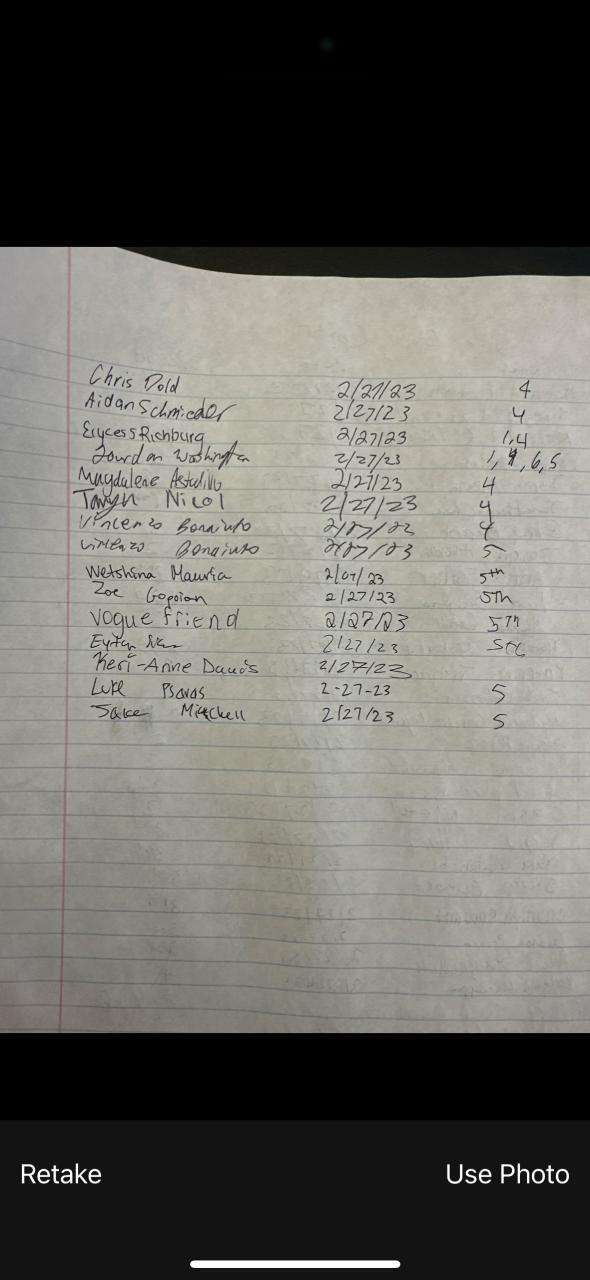 Chris Dold 2/27/23 4
Aidan Schmieder 2/27/23 4
Erycess Richburg 2/27/23 1,4
Jourdan Washington 2/27/23 1, 4, 6, 5
Magdalene Astudillo 2/27/23 4
Taryn Nicol 2/27/23 4
Vincenzo Bonaiuto 2/27/23 4
Vincenzo Bonaiuto 2/27/23 5
Wetshina Mauvia 2/27/23 5th
Zoe Gopoian 2/27/23 5th
Vogue friend 2/27/23 5TH
Eytan 2/27/23
Keri-Anne Davis 2/27/23
Luke Psaras 2-27-23 5
Jake Mitchell 2/27/23 5
Retake Use Photo